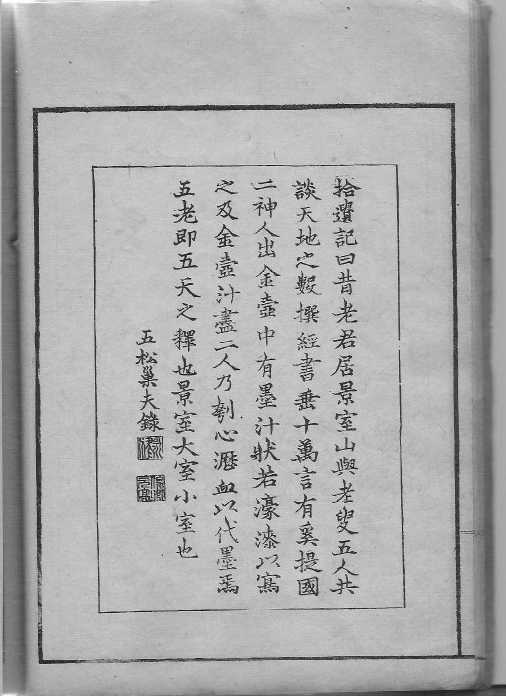 拾遺記曰昔老君居景室山與老叟五人共
談天地之數撰經書垂十萬言有奚提國
二神人出金壺中有墨汁狀若濠漆以寫
之及金壺汁盡二人乃刳心瀝血以代墨焉
五老即五天之釋也景室大室小室也
五松巢夫錄